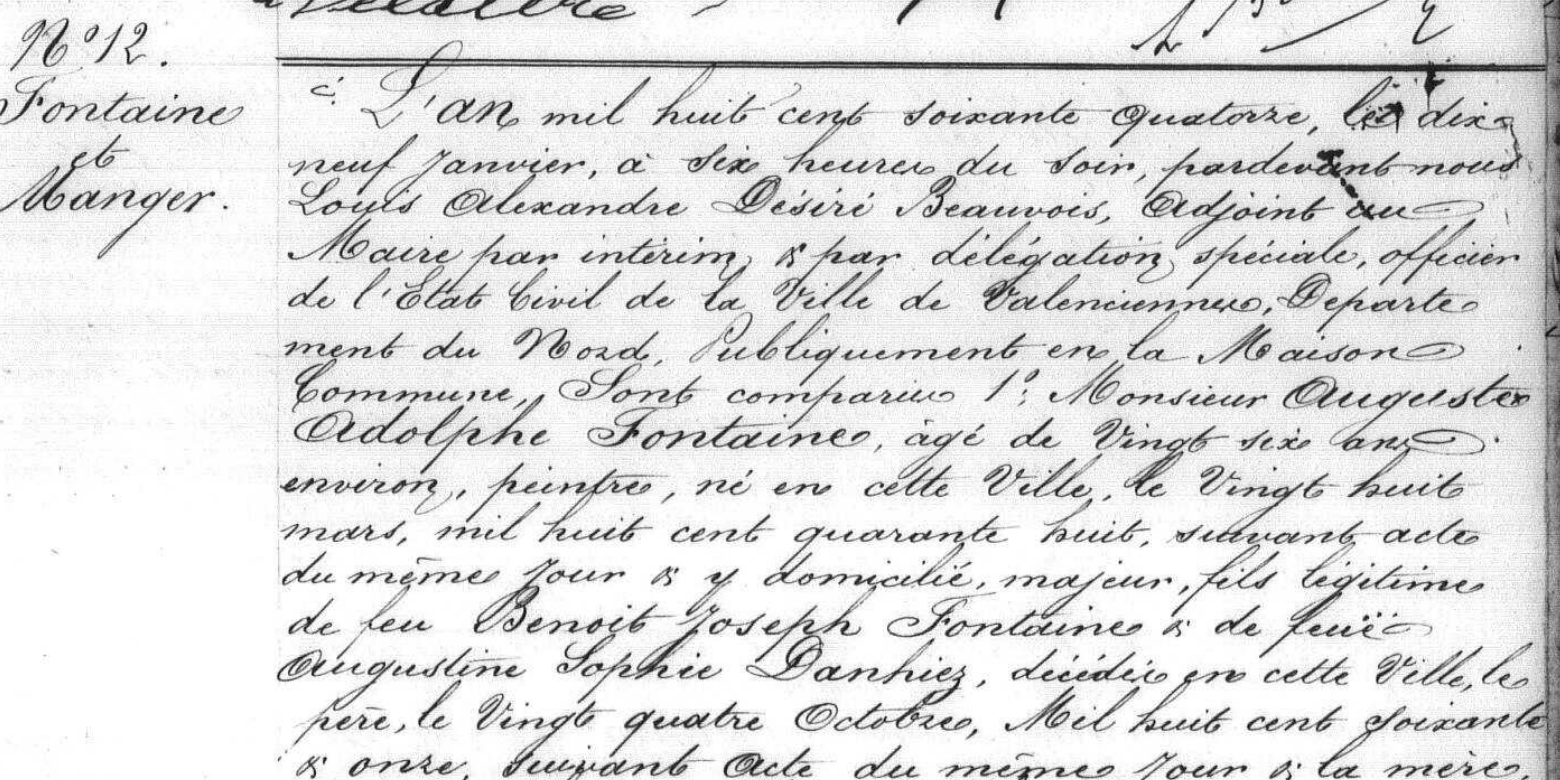 N° 12.
Fontaine
et
Manger.
L'an mil huit cent soixante quatorze, le dix
neuf Janvier, à six heures du soir, pardevant nous
Louis Alexandre Désiré Beauvois, Adjoint au
Maire par intérim & par délégation spéciale, officier
de l'Etat Civil de la Ville de Valenciennes, Departe
ment du Nord, Publiquement en la Maison
Commune, Sont comparus 1°: Monsieur Auguste
Adolphe Fontaine, âgé de Vingt six ans
environ, peintre, né en cette Ville, le Vingt huit
mars, mil huit cent quarante huit, suivant acte
du même Jour & y domicilié, majeur, fils légitime
de feu Benoit Joseph Fontaine & de feuë
Augustine Sophie Danhiez, décédés en cette Ville, le
père, le Vingt quatre Octobre, Mil huit cent soixante
& onze, suivant Acte du même Jour & la mère